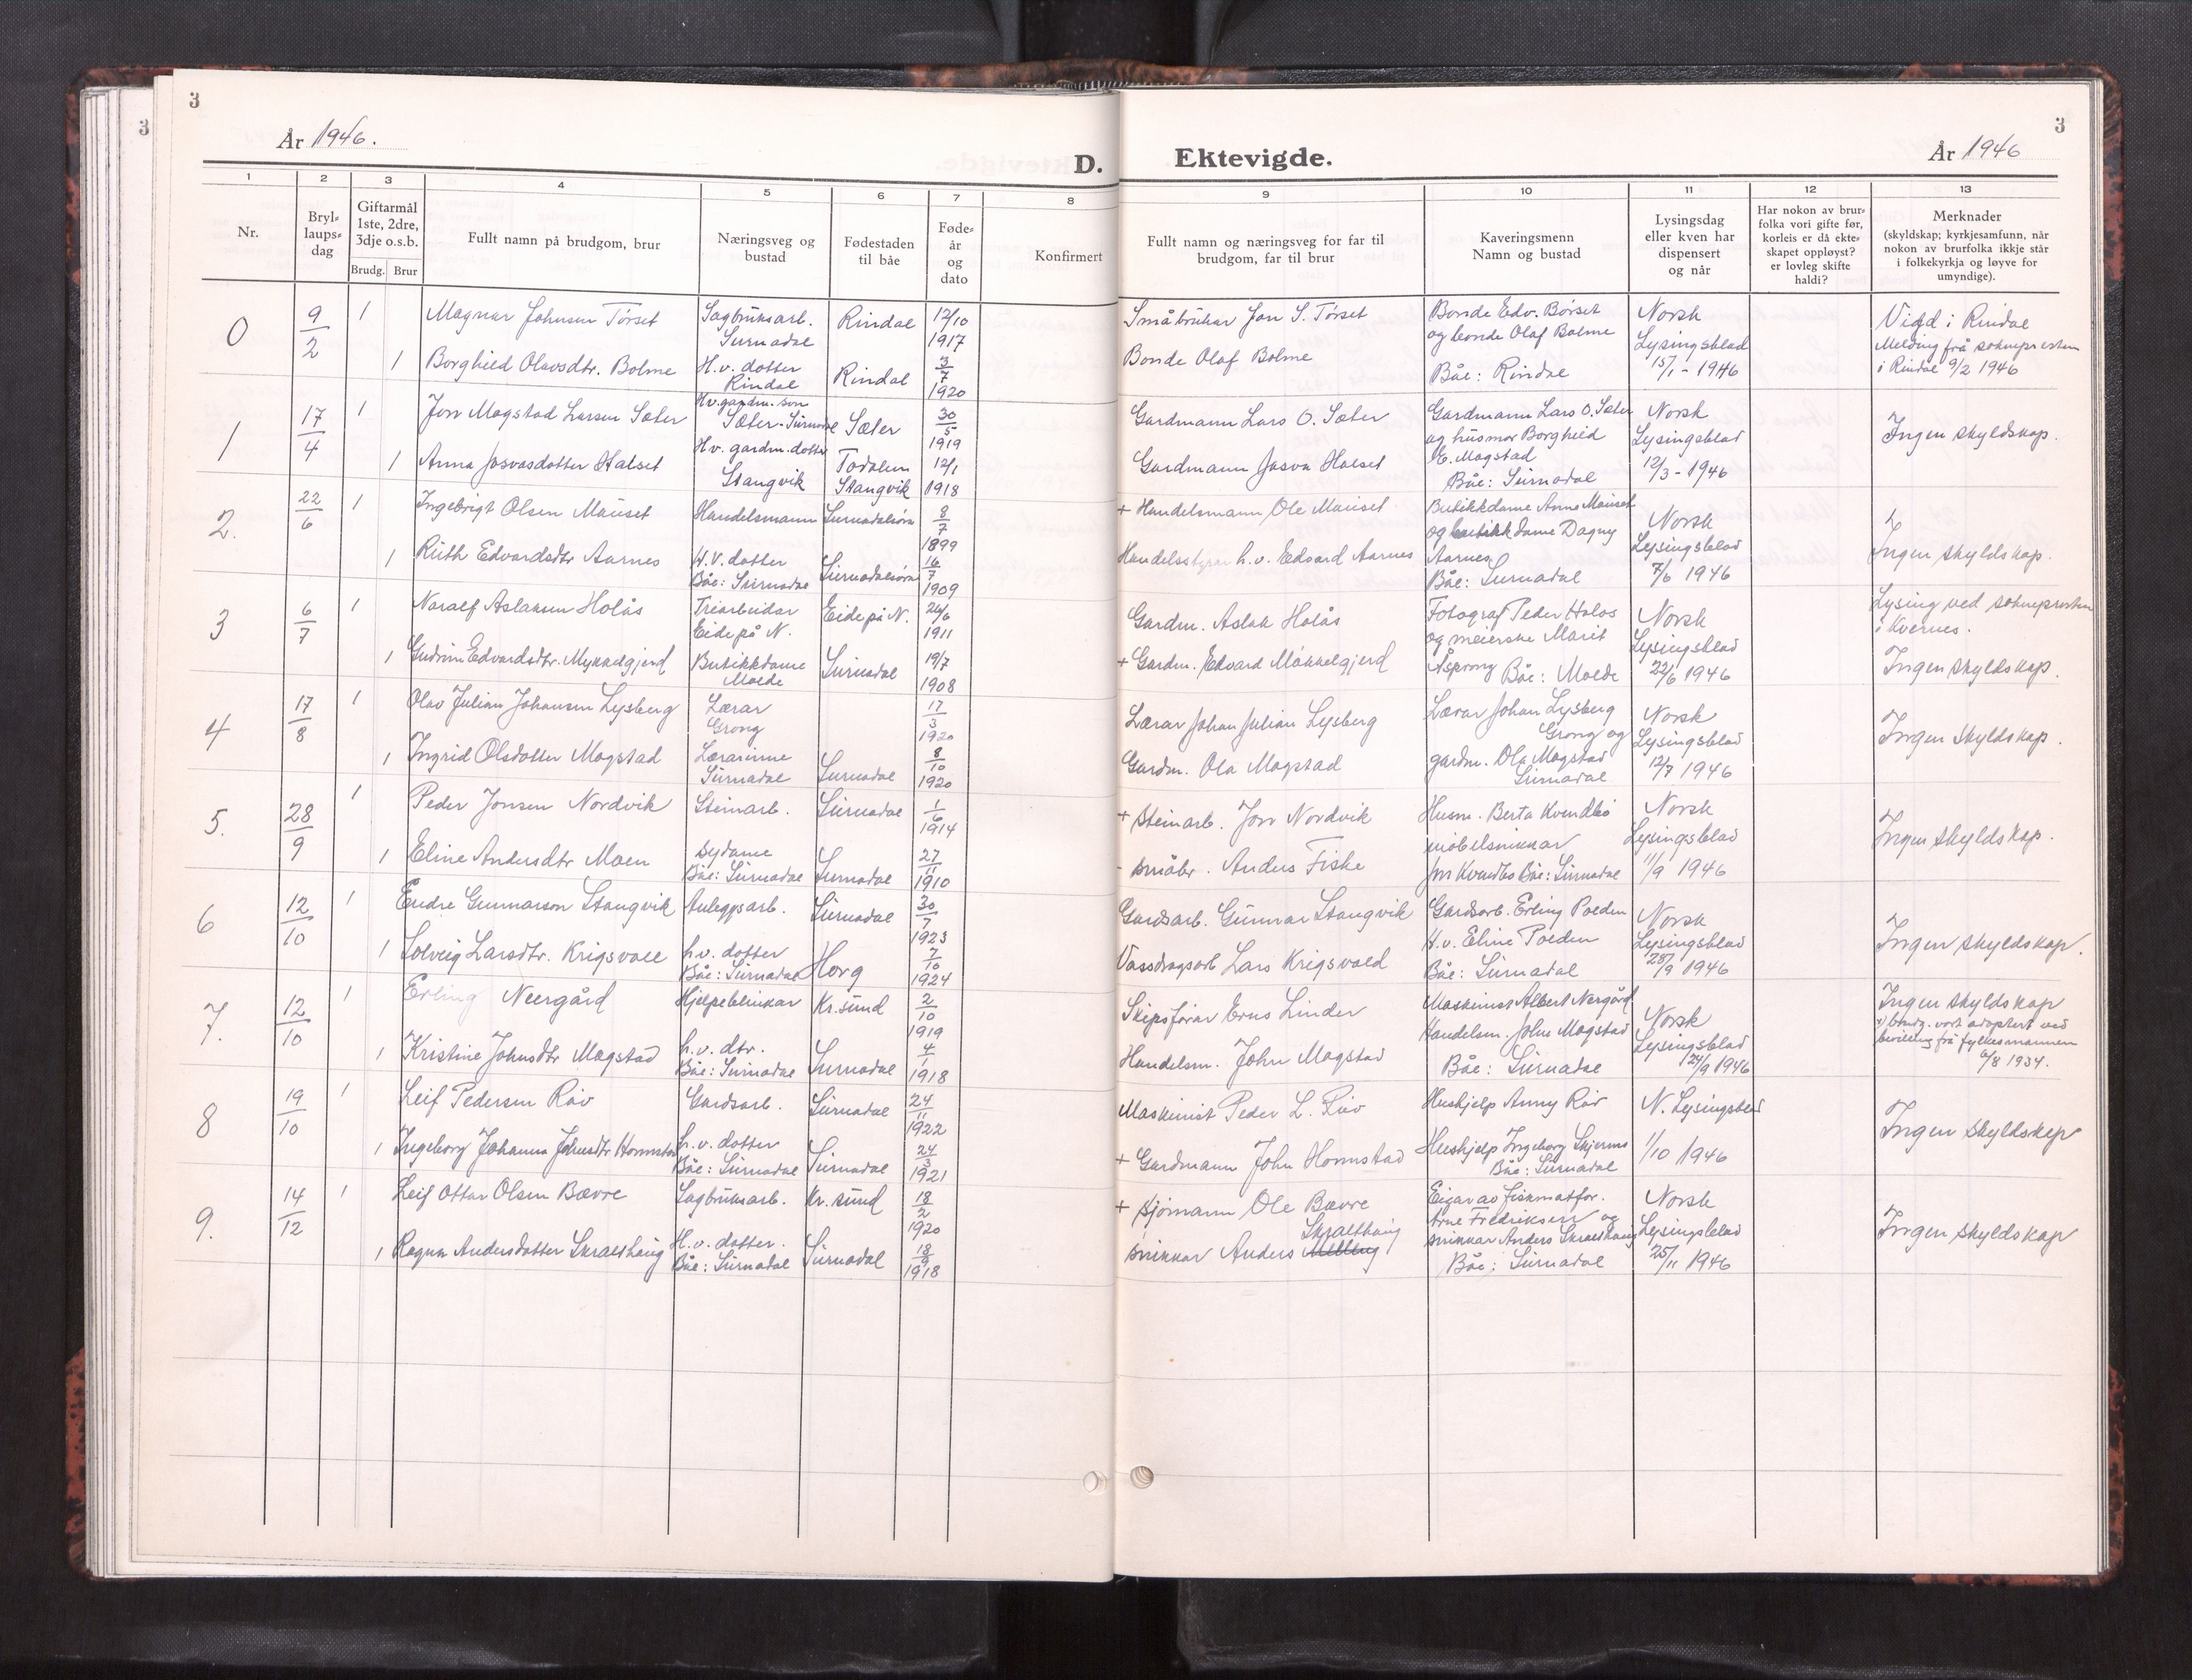 3
3
År 1946.
D.
1
2
3
4
5
6
7
8
Nr.
Bryl-
laups-
dag
Giftarmål
1ste, 2dre,
3dje o.s.b.
Brudg. Brur
Fullt namn på brudgom, brur
Næringsveg og
bustad
Fødestaden
til båe
Føde-
år
og
dato
Konfirmert
0
9/2
1
Magnar Johnsen Tørset
Sagbruksarb.
Surnadal
Rindal
12/10
1917
1
Borghild Olavsdtr. Bolme
H.v. dotter
Rindal
Rindal
3/7
1920
1
17/4
1
Jon Magstad Larsen Sæter
Hv. gardm. son
Sæter - Surnadal
Sæter
30/5
1919
1
Anna Josvasdotter Halset
H.v. gardm. dotter
Stangvik
Todalen
Stangvik
12/1
1918
2.
22/6
1
Ingebrigt Olsen Mauset
Handelsmann
Surnadalsøra
8/7
1899
1
Ruth Edvardsdtr Aarnes
H.V. dotter
Båe: Surnadal
Surnadalsøra
16/7
1909
3
6/7
1
Naralf Aslaksen Holås
Trearbeidar
Eide på N.
Eide på N.
24/6
1911
1
Gudrun Edvardsdtr. Mykkelgjerd
Butikkdame
Molde
Surnadal
19/7
1908
4
17/8
1
Olav Julian Johansen Lysberg
Lærar
Grong
17/3
1920
1
Ingrid Olsdotter Magstad
Lærarinne
Surnadal
Surnadal
8/10
1920
5.
28/9
1
Peder Jonsen Nordvik
Steinarb.
Surnadal
1/6
1914
1
Eline Andersdtr Moen
sydame
Båe: Surnadal
Surnadal
27/11
1910
6
12/10
1
Endre Gunnarson Stangvik
Anleggsarb.
Surnadal
30/7
1923
1
Solveig Larsdtr. Krigsvoll
h.v. dotter
Båe: Surnadal
Horg
7/10
1924
7.
12/10
1
Erling Neergård
Hjelpeblikkar
Kr.sund
2/10
1919
1
Kristine Johnsdtr Magstad
h.v. dtr.
Båe: Surnadal
Surnadal
4/1
1918
8
19/10
1
Leif Pedersen Røv
Gardsarb.
Surnadal
24/11
1922
1
Ingeborg Johanna Johnsdtr Hormstad
h.v. dotter
Båe: Surnadal
Surnadal
24/3
1921
9.
14/12
1
Leif Ottar Olsen Bævre
Sagbruksarb.
Kr.sund
18/2
1920
1
Ragna Andersdotter Skralthaug
H.v. dotter.
Båe: Surnadal
Surnadal
18/9
1918
3
Ektevigde.
År 1946
9
10
11
12
13
Fullt namn og næringsveg for far til
brudgom, far til brur
Kaveringsmenn
Namn og bustad
Lysingsdag
eller kven har
dispensert
og når
Har nokon av brur-
folka vori gifte før,
korleis er då ekte-
skapet oppløyst?
er lovleg skifte
haldi?
Merknader
(skyldskap; kyrkjesamfunn, når
nokon av brurfolka ikkje står
i folkekyrkja og løyve for
umyndige).
Småbrukar Jon S. Tørset
Bonde Olaf Bolme
Bonde Edv. Børset
og bonde Olaf Bolme
Båe: Rindal
Norsk
Lysingsblad
15/1 - 1946
Vigd i Rindal
Melding frå soknepresten
i Rindal 9/2 1946
Gardmann Lars O. Sæter
Gardmann Josva Halset
Gardmann Lars O. Sæter
og husmor Borghild
E. Magstad
Båe: Surnadal
Norsk
Lysingsblad
12/3 - 1946
Ingen skyldskap.
+ Handelsmann Ole Mauset
Handelsstyrar h.v. Edvard Aarnes
Butikkdame Anna Mauset
og butikkdame Dagny
Aarnes
Båe: Surnadal
Norsk
Lysingsblad
7/6 1946
Ingen skyldskap.
Gardm. Aslak Holås
+ Gardm. Edvard Møkkelgjerd
Fotograf Peder Holås
og meierske Marit
Åsprong Båe: Molde
Norsk
Lysingsblad
22/6 1946
Lysing ved soknepresten
i Kvernes.
Ingen skyldskap.
Lærar Johan Julian Lysberg
Gardm. Ola Magstad
Lærar Johan Lysberg
Grong og
gardm. Ola Magstad
Surnadal
Norsk
Lysingsblad
12/7 1946
Ingen skyldskap.
+ steinarb. Jon Nordvik
- småbr. Anders Fiske
Husm. Berta Kvendbø
møbelsnikkar
Jon Kvendbø Båe: Surnadal
Norsk
Lysingsblad
11/9 1946
Ingen skyldskap.
Gardsarb. Gunnar Stangvik
Vassdragsarb Lars Krigsvold
Gardsarb. Erling Polden
H.v. Eline Polden
Båe: Surnadal
Norsk
Lysingsblad
28/9 1946
Ingen skyldskap.
Skipsførar Erns Linder
Handelsm. John Magstad
Maskinist Albert Nergård
Handelsm. John Magstad
Båe: Surnadal
Norsk
Lysingsblad
24/9 1946
Ingen skyldskap
brudg. vart adoptert ved
beviling frå fylkesmannen
6/8 1934.
Maskinist Peder L. Røv
+ Gardmann John Hormstad
Hushjelp Anny Røv
Hushjelp Ingeborg Skjermo
Båe: Surnadal
N. Lysingsblad
1/10 1946
Ingen skyldskap
+ sjømann Ole Bævre
Skralthaug
snikkar Anders
Eigar av fiskmatfor.
Arne Fredriksen og
snikkar Anders Skralthaug
Båe: Surnadal
Norsk
Lysingsblad
25/11 1946
Ingen skyldskap